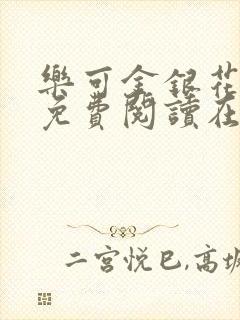 樂可金銀花
免費閱讀在
二宮悦巳,高坂